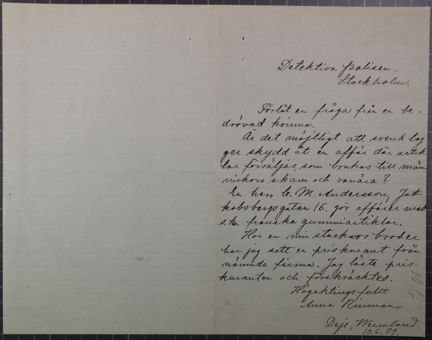 Detektiva Polisen.
Stockholm.
Förlåt en fråga från en be-
dröfvad kvinna.
Är det möjligt att svensk lag
ger skydd åt en affär där artik-
lar försäljas, som brukas till män-
niskors skam och vanära?
En herr C. M. Andersson, Jak-
kobsbergsgatan 16, gör affärer med
s.k. franska gummiartiklar.
Hos en min stackars broder
har jag sett en priskurant från
nämnda firma. Jag läste pris-
kuranten och förskräcktes.
Högaktningsfullt
Anna
Deje, Wermland